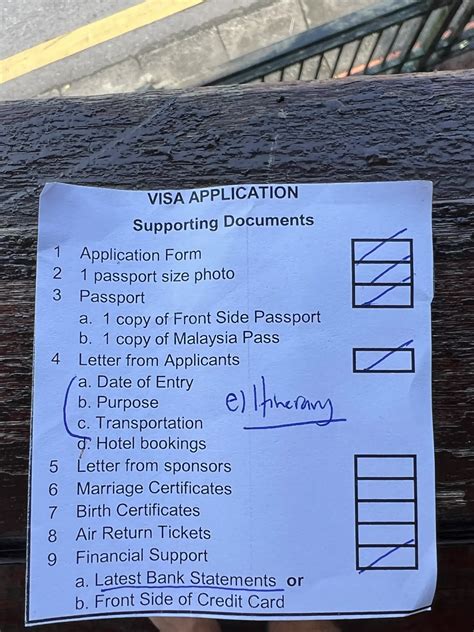 VISA APPLICATION
Supporting Documents
1 Application Form
2 1 passport size photo
3 Passport
a. 1 copy of Front Side Passport
b. 1 copy of Malaysia Pass
4 Letter from Applicants
a. Date of Entry
b. Purpose
e) Itinerary
c. Transportation
d. Hotel bookings
5 Letter from sponsors
6 Marriage Certificates
7 Birth Certificates
8 Air Return Tickets
9 Financial Support
a. Latest Bank Statements or
b. Front Side of Credit Card